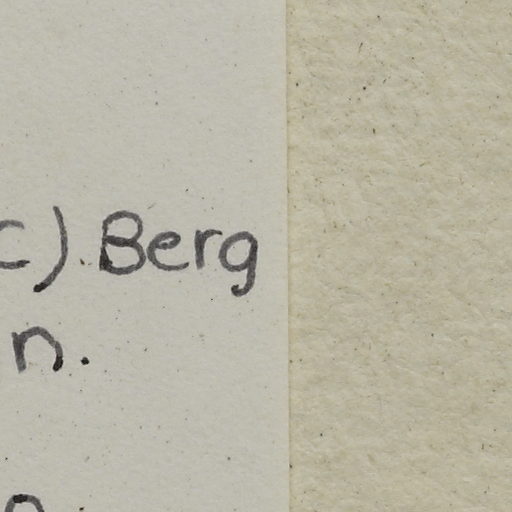 c) Berg
n.